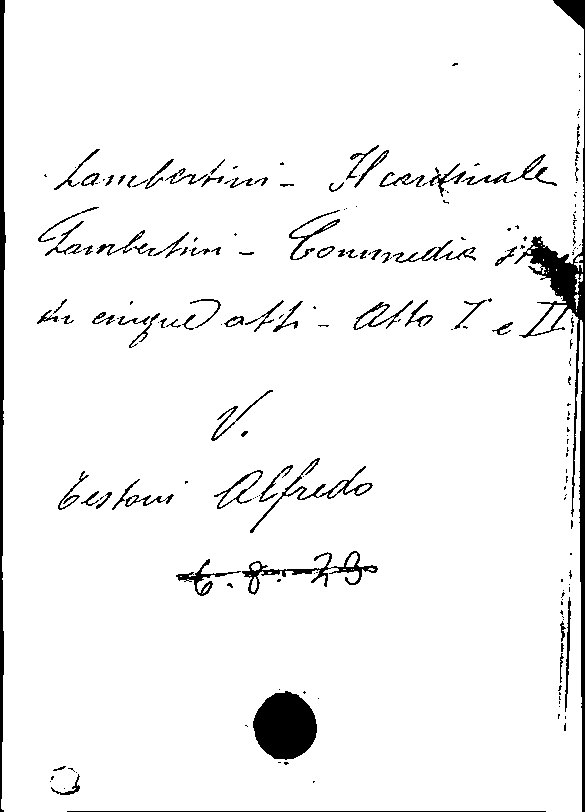 Lambertini - Il cardinale
Lambertini - Commedia
in cinque atti - Atto I e II
V.
Testoni Alfredo
6.8.23